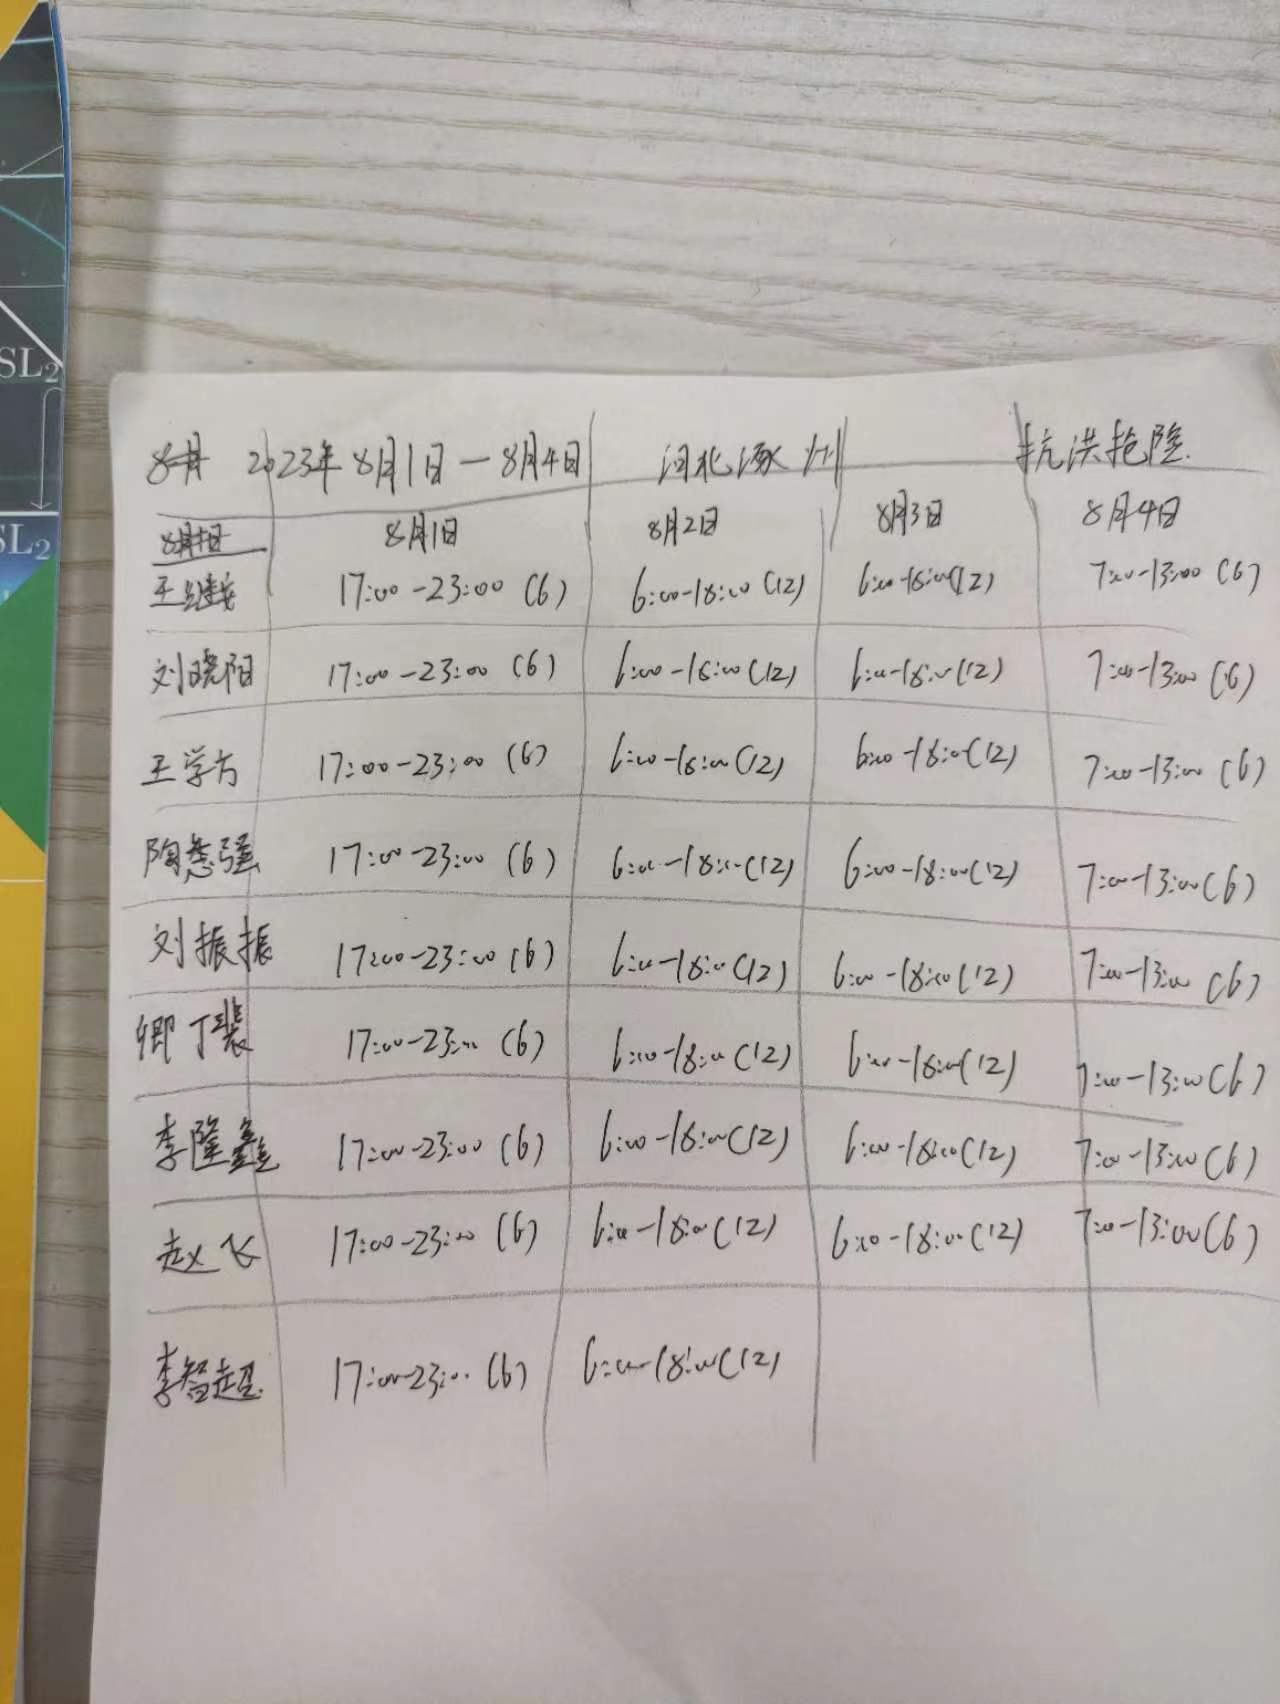 SL2
SL2
2023年8月1日－8月4日 河北涿州 抗洪抢险
8月1日 8月2日 8月3日 8月4日
17:00-23:00 (6) 6:00-18:00 (12) 6:00-18:00 (12) 7:00-13:00 (6)
刘晓阳 17:00-23:00 (6) 6:00-18:00 (12) 6:00-18:00 (12) 7:00-13:00 (6)
王学方 17:00-23:00 (6) 6:00-18:00 (12) 6:00-18:00 (12) 7:00-13:00 (6)
陶志强 17:00-23:00 (6) 6:00-18:00 (12) 6:00-18:00 (12) 7:00-13:00 (6)
刘振振 17:00-23:00 (6) 6:00-18:00 (12) 6:00-18:00 (12) 7:00-13:00 (6)
卿丁裴 17:00-23:00 (6) 6:00-18:00 (12) 6:00-18:00 (12) 7:00-13:00 (6)
李隆鑫 17:00-23:00 (6) 6:00-18:00 (12) 6:00-18:00 (12) 7:00-13:00 (6)
赵飞 17:00-23:00 (6) 6:00-18:00 (12) 6:00-18:00 (12) 7:00-13:00 (6)
李智超 17:00-23:00 (6) 6:00-18:00 (12)